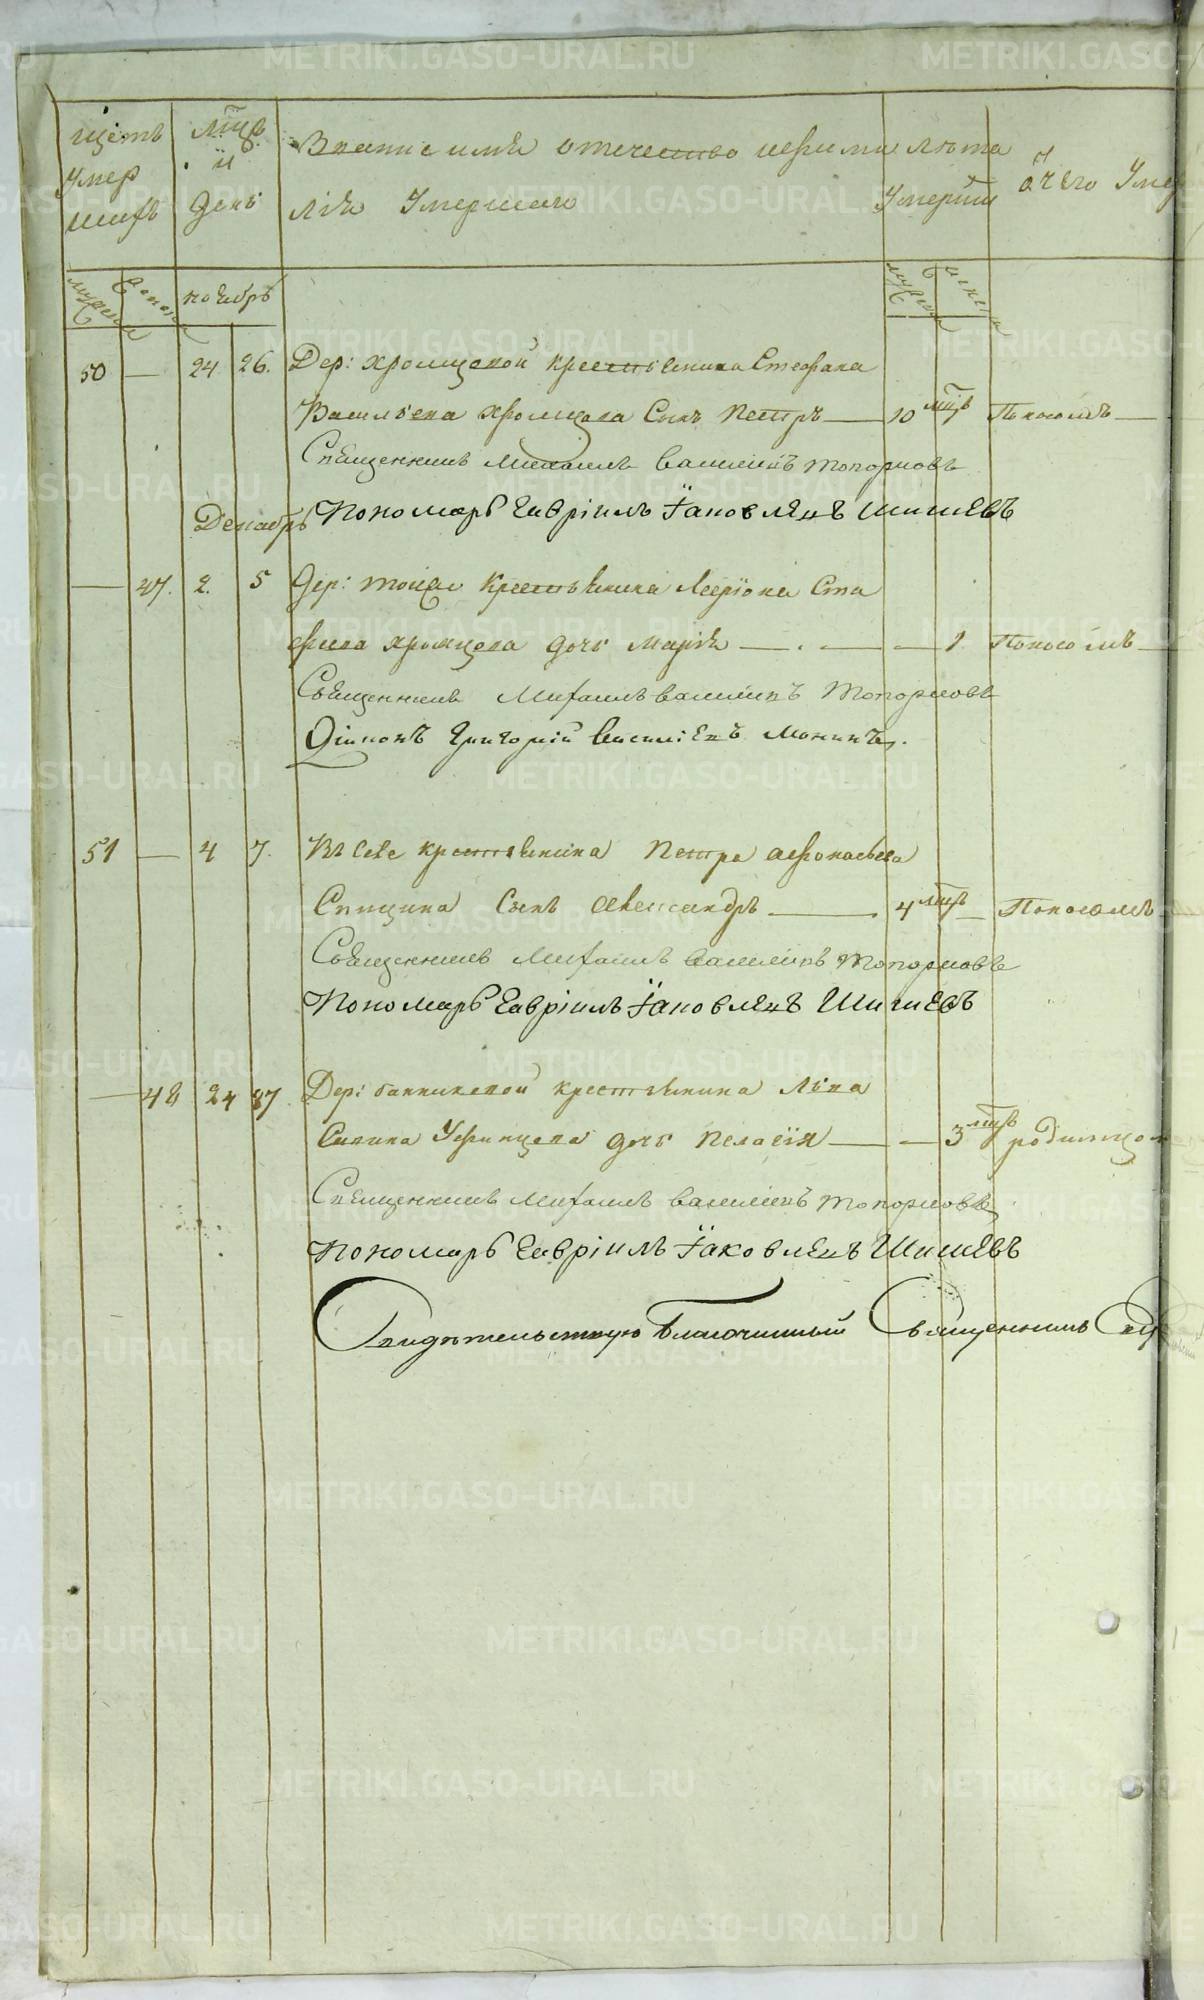 щетъ умер шихъ
мцъ и день
Званïе имя отечество и фамилïя умершаго
лета умершихъ
ѿ чего умер
мужеска женска
ноября
мужеска женска
50 — 24 26. Дер: Хромцовой крестьянина Стефана
Васильева Хромцова сынъ Петръ — 10 мцъ Поносомъ —
Священникъ Михаилъ Васильевъ Топорковъ
Декабрь
Пономарь Гаврïилъ Ïаковлевъ Шишевъ
— 47. 2. 5 Дер: тойже крестьянина Ларïона Ста
фиева Хромцова дочь Марïя — — — 1 Поносомъ —
Священникъ Михаилъ Васильевъ Топорковъ
Дïяконъ Григорïй Василïевъ Монинъ.
51 — 4 7. Въ селе крестьянина Петра Афонасьева
Спицина сынъ Александръ — 4 мцъ — Поносомъ
Священникъ Михаилъ Васильевъ Топорковъ
Пономарь Гаврïилъ Ïаковлевъ Шишевъ
— 48 24 27 Дер: Банниковой крестьянина Льва
Савина Уфинцова дочь Пелагïя — — 3 мцъ родимцом
Священникъ Михаилъ Васильевъ Топорковъ
Пономарь Гаврïилъ Ïаковлевъ Шишевъ
Свидѣтельствую Благочинный Священникъ
METRIKI.GASO-URAL.RU